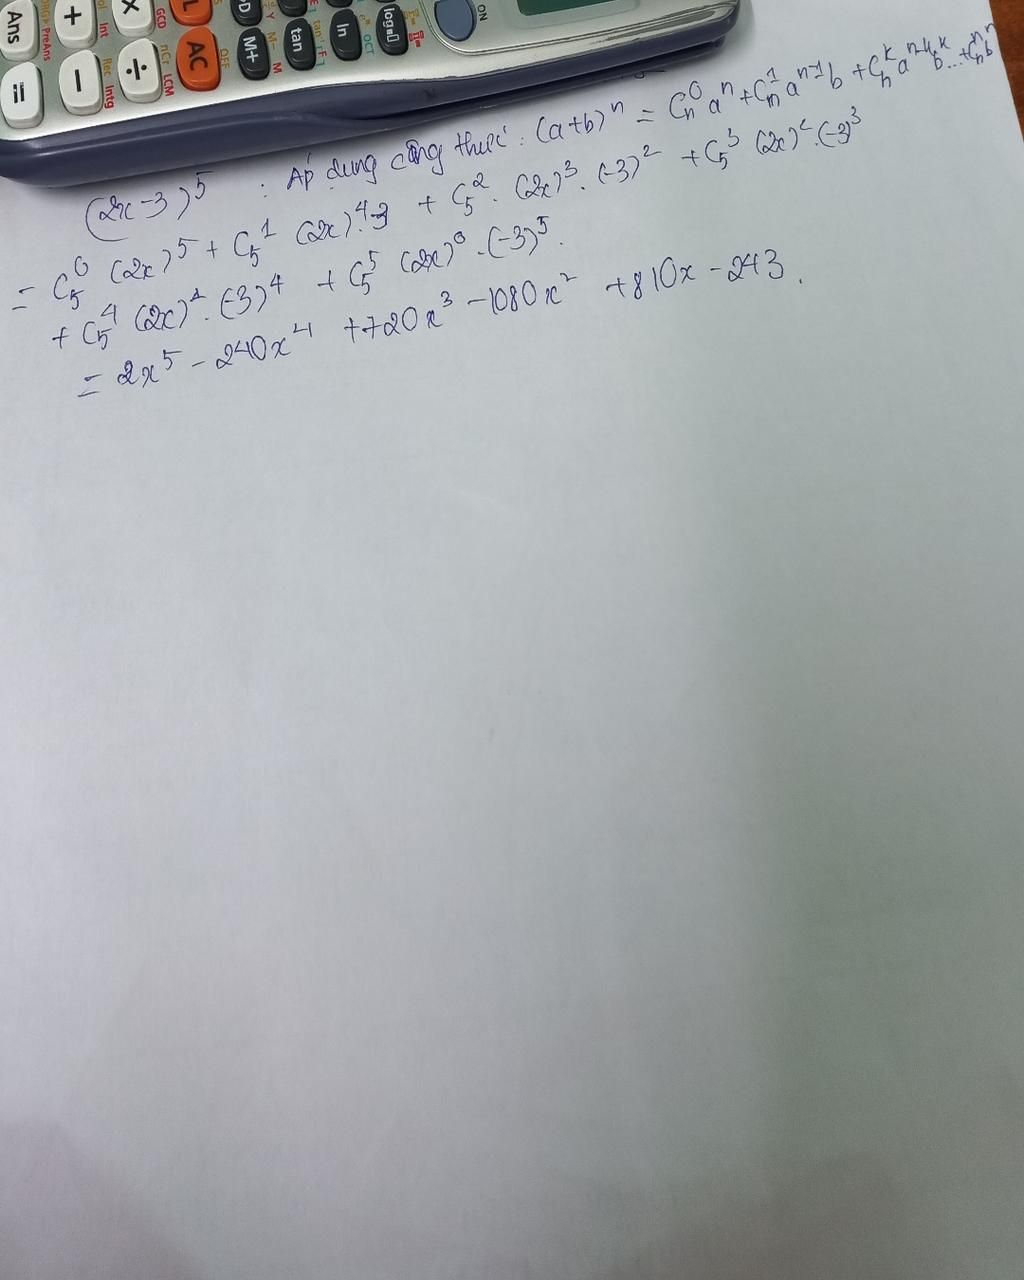 (2x-3)^5 : Áp dụng công thức: (a+b)^n = C_n^0 a^n + C_n^1 a^{n-1} b + C_n^k a^{n-k} b^k ... + C_n^n b^n
= C_5^0 (2x)^5 + C_5^1 (2x)^4.-3 + C_5^2 . (2x)^3 . (-3)^2 + C_5^3 (2x)^2 . (-3)^3
+ C_5^4 (2x)^1 . (-3)^4 + C_5^5 (2x)^0 . (-3)^5 .
= 2x^5 - 240x^4 + 720x^3 - 1080x^2 + 810x - 243 .
Ans
=
+
−
×
÷
AC
M+
tan
ln
log
ON
PreAns
Int
Intg
Rec
GCD
LCM
OFF
OCT
M−
M
Y